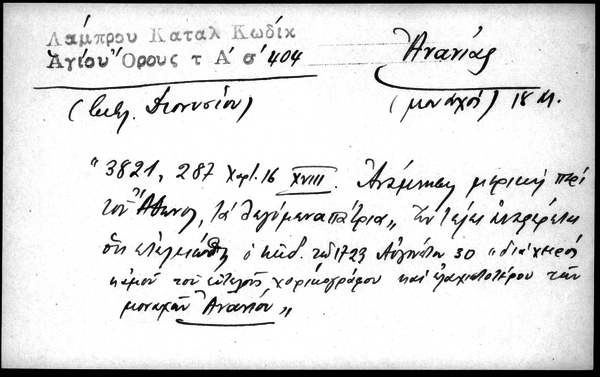 Λάμπρου Καταλ Κωδίκ
Ἁγίου Ὄρους τ Α΄ σ΄ 404
Ἀνανίας
(Ἐκκλ. Διονυσίου)
(μοναχός) 18 Μ.
"3821, 287 Χαρτ. 16 XVIII. Ἀνάμνησις μερική περί
τοῦ Ἄθωνος, τὰ λεγόμενα πάτρια„ Ἐν τέλει ἀναφέρεται
ὅτι ἐτελειώθη ὁ κῶδ. τῷ 1723 Αὐγούστου 30 "διὰ χειρὸς
κἀμοῦ τοῦ εὐτελοῦς χωρικογράφου καὶ ἐλαχιστοτέρου τῶν
μοναχῶν Ἀνανίου„